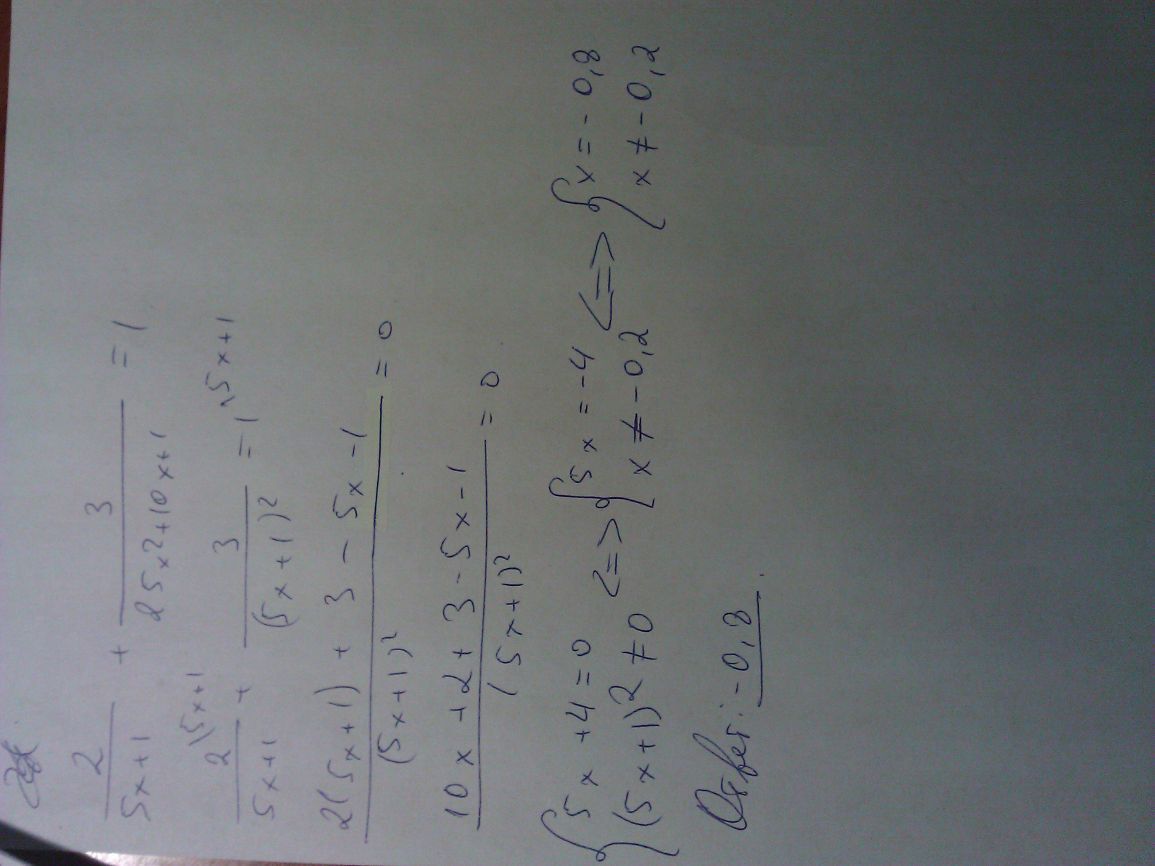 2/(5x+1) + 3/(25x2+10x+1) = 1
2\5x+1/(5x+1) + 3/(5x+1)² = 1\5x+1
(2(5x+1) + 3 - 5x - 1)/(5x+1)² = 0
(10x + 2 + 3 - 5x - 1)/(5x+1)² = 0
{5x + 4 = 0 <=> {5x = -4 <=> {x = -0,8
(5x+1)² ≠ 0 x ≠ -0,2 x ≠ -0,2
Ответ: -0,8.